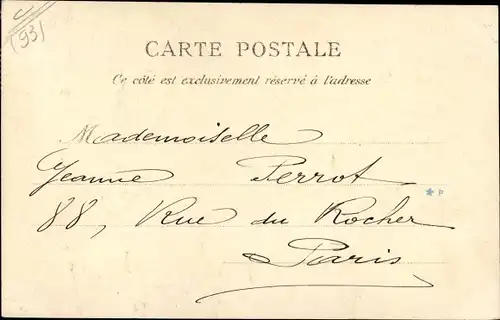 (93)
CARTE POSTALE
Ce côté est exclusivement réservé à l'adresse
Mademoiselle
Jeanne Perrot
88, Rue du Rocher
Paris